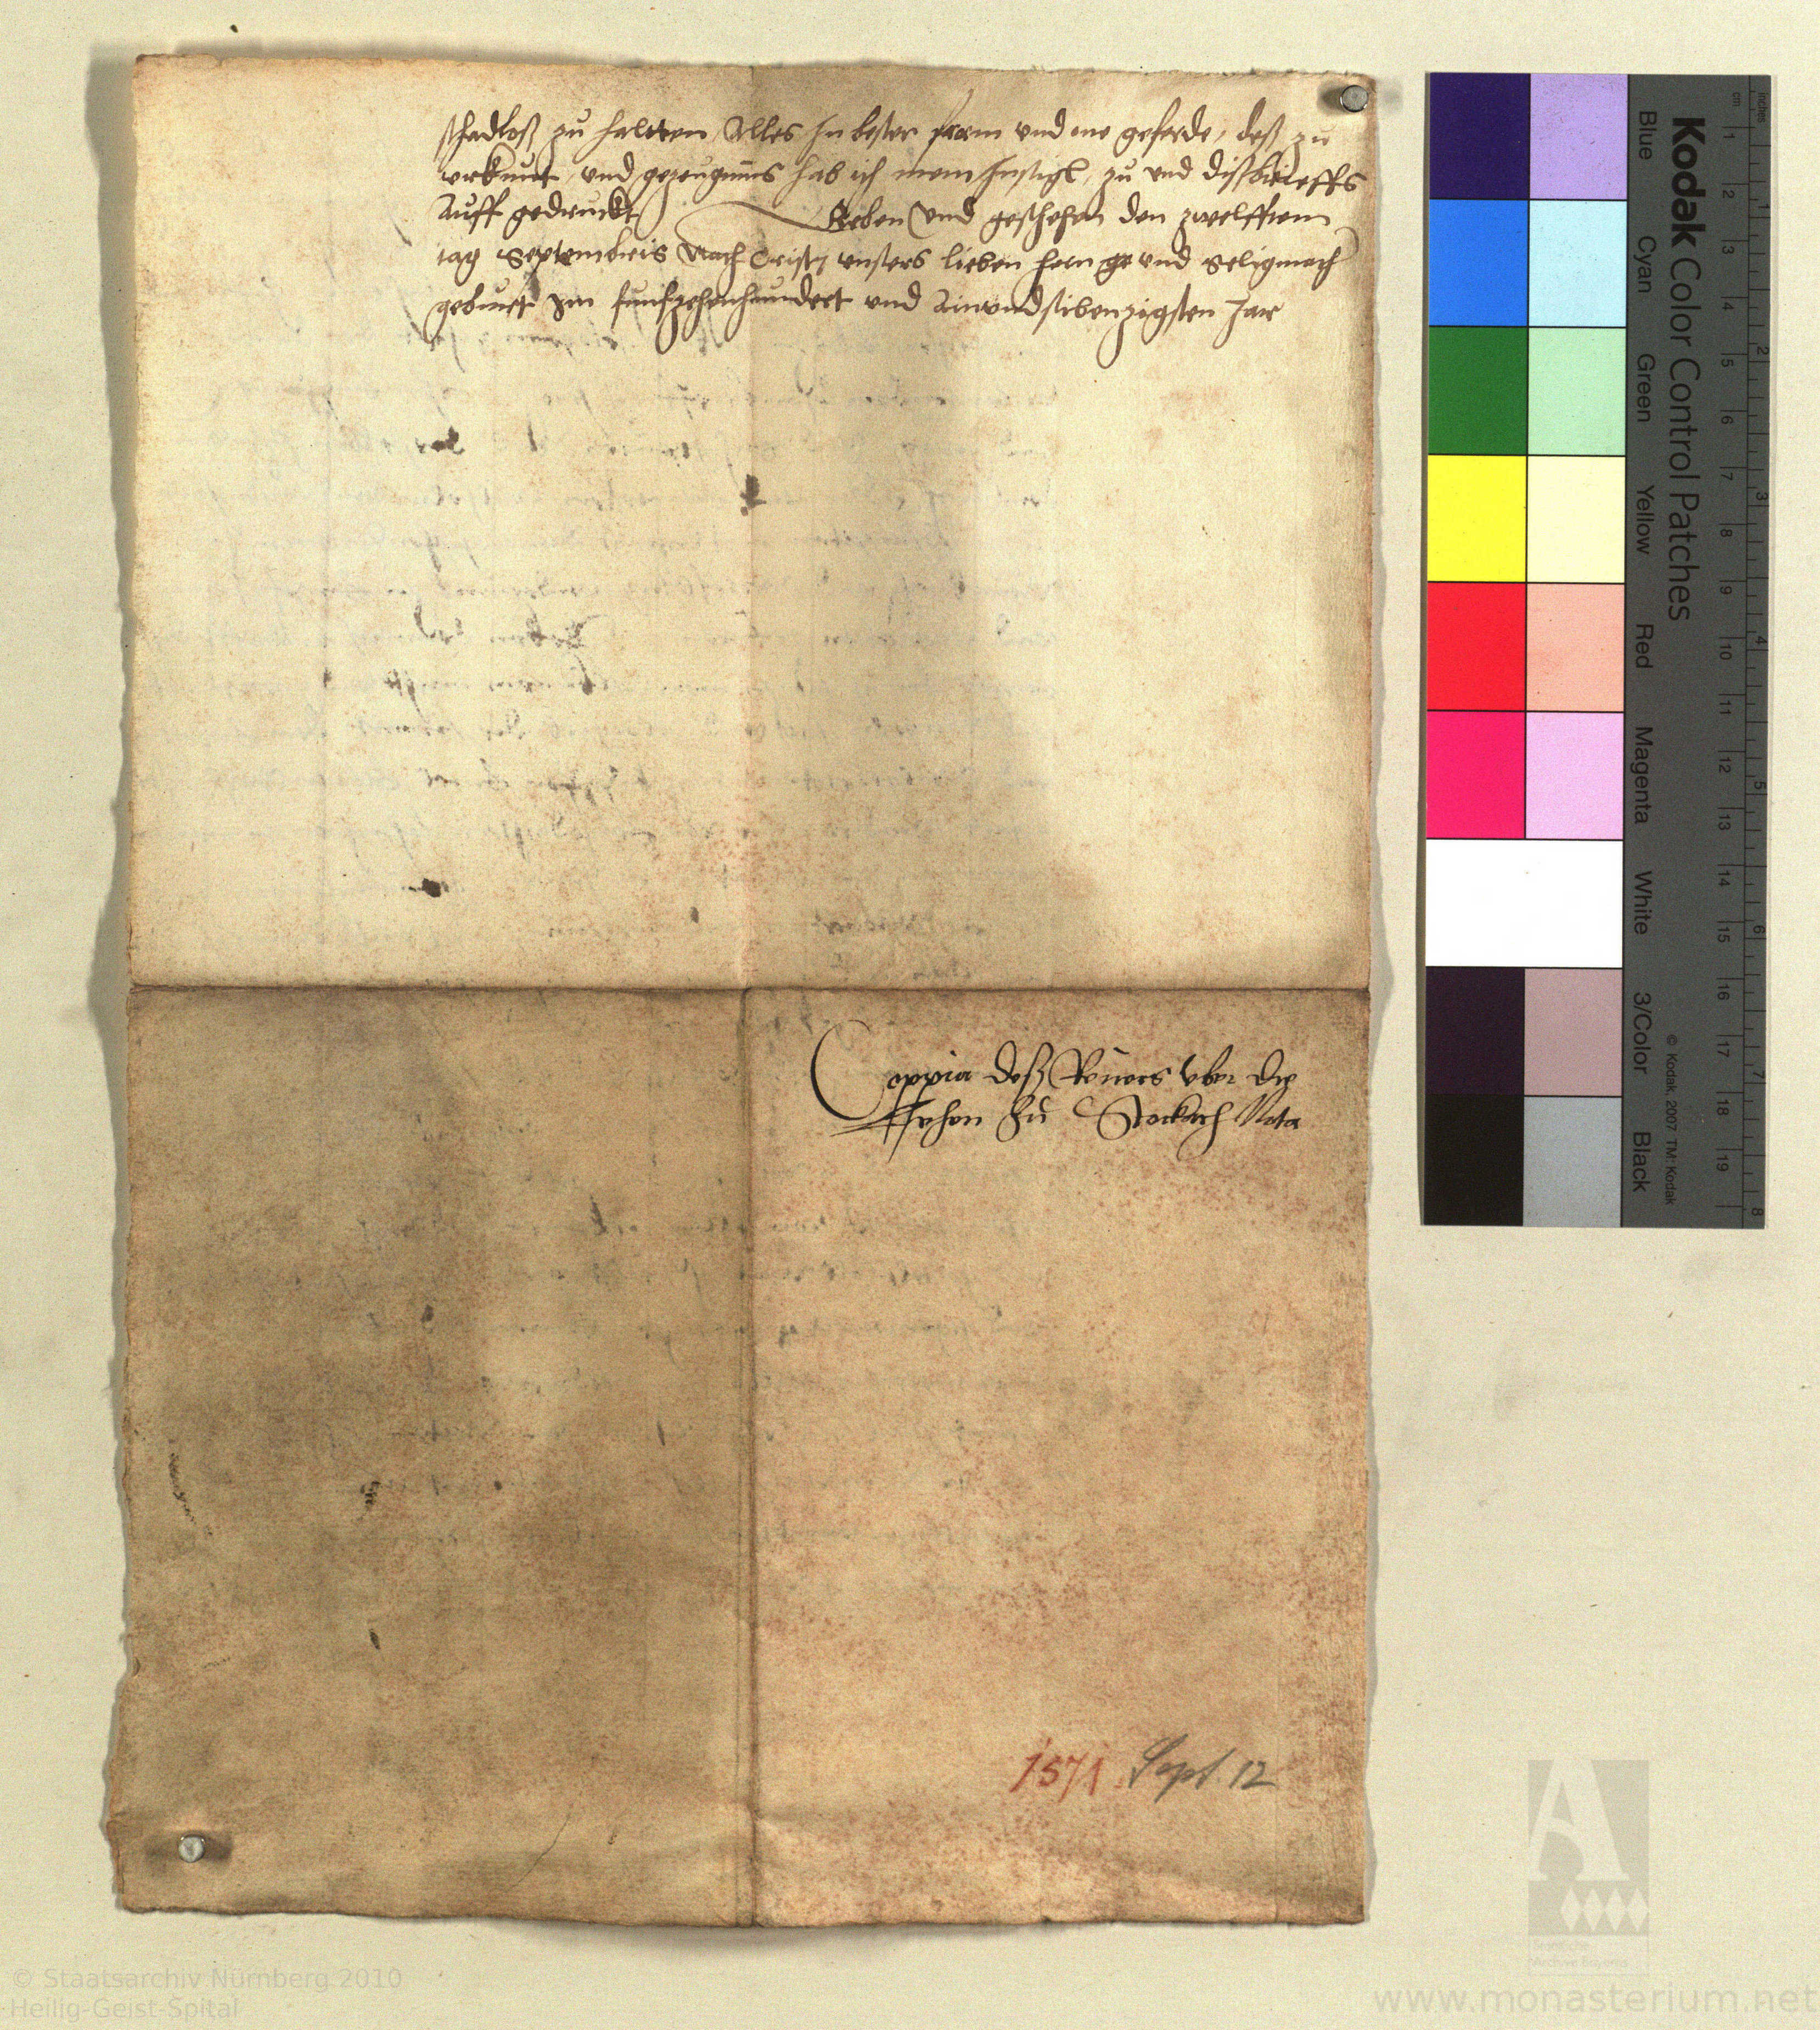 schadloß zu haltten Alles In bester form vnd one geferde, deß zu
vrkunt, vnd gezeugnüs hab ich mein Insigl, zu end diß brieffs
Auff gedruckt Geben vnd geschehen den zwelfften
tag Septembris Nach Cristj vnsers lieben hern ge vnd seligmach
geburt Im funfzehenhundert vnd Ainvndsibenzigsten Jar
Coppia deß Reuers vber die
Lehen Zu Stockach Nota
1571 Sept 12
Kodak Color Control Patches
Blue Cyan Green Yellow Red Magenta White 3/Color Black
© Kodak, 2007 TM: Kodak
cm 1 2 3 4 5 6 7 8 9 10 11 12 13 14 15 16 17 18 19
inches 1 2 3 4 5 6 7 8
© Staatsarchiv Nürnberg 2010
Heilig-Geist-Spital
www.monasterium.net